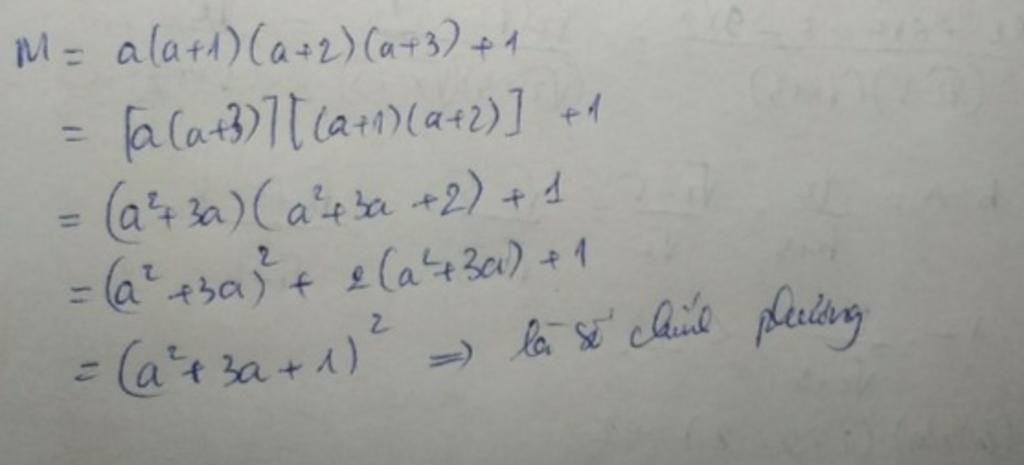 M = a(a+1)(a+2)(a+3)+1
= [a(a+3)][(a+1)(a+2)] +1
= (a²+3a)(a²+3a+2)+1
= (a²+3a)²+ 2(a²+3a)+1
= (a²+3a+1)² => là số chính phương